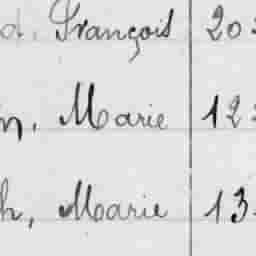 d. François 20
n, Marie 12
h, Marie 13